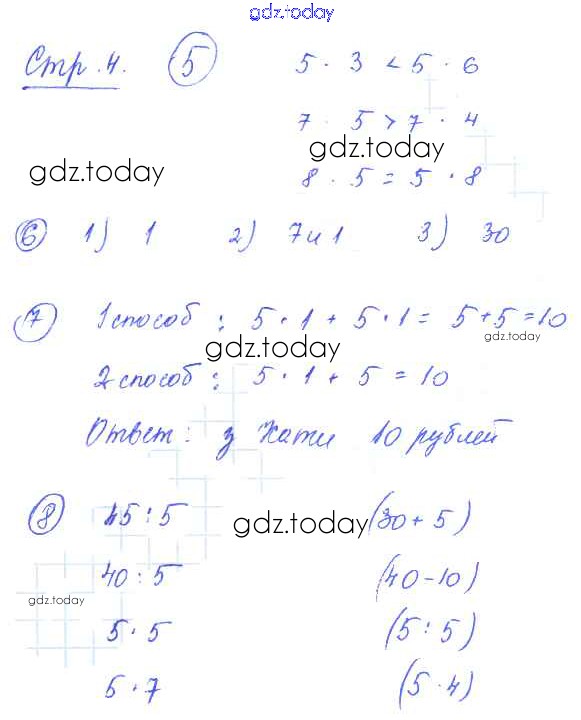 gdz.today
Стр. 4. 5 5 · 3 < 5 · 6
7 · 5 > 7 · 4
gdz.today gdz.today
8 · 5 = 5 · 8
6 1) 1 2) 7 и 1 3) 30
7 1 способ : 5 · 1 + 5 · 1 = 5 + 5 = 10
gdz.today gdz.today
2 способ : 5 · 1 + 5 = 10
Ответ : у Кати 10 рублей
8 45 : 5 gdz.today (30 + 5)
40 : 5 (40 - 10)
gdz.today
5 · 5 (5 : 5)
5 · 7 (5 · 4)